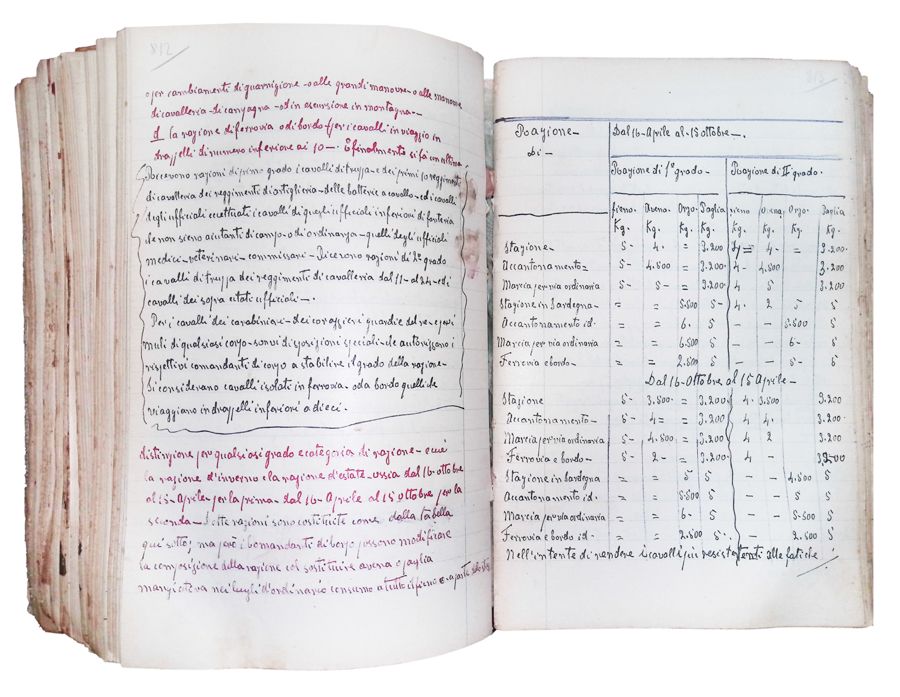 812
o per cambiamenti di guarnigione - o alle grandi manovre - o alle manovre
di cavalleria - di campagna - od in escursione in montagna -
d la razione di ferrovia o di bordo - per i cavalli in viaggio in
drappelli di numero inferiore ai 10 -. E finalmente si fa un'ultima
Ricevono razioni di primo grado i cavalli di truppa - dei primi 10 reggimenti
di cavalleria dei reggimenti di artiglieria - delle batterie a cavallo - ed i cavalli
degli ufficiali eccettuati i cavalli di quegli ufficiali inferiori di fanteria
che non sieno aiutanti di campo - o di ordinanza - quelli degli ufficiali
medici - veterinari - commissari - Ricevono razioni di 2º grado
i cavalli di truppa dei reggimenti di cavalleria dal 11 - al 24 - ed i
cavalli dei sopra citati ufficiali -.
Per i cavalli dei carabinieri - dei corazzieri guardie del re - e per i
muli di qualsiasi corpo - sonvi disposizioni speciali - che autorizzano i
rispettivi comandanti di corpo a stabilire il grado della razione -
Si considerano cavalli isolati in ferrovia - o da bordo quelli che
viaggiano in drappelli inferiori a dieci.
distinzione per qualsiasi grado e categoria di razione - e cioè
la razione d'inverno e la razione d'estate - ossia dal 16 - ottobre
al 15 - Aprile - per la prima - dal 16 - Aprile al 15 ottobre per la
seconda - Dette razioni sono costituite come dalla tabella
qui sotto; ma però i Comandanti di Corpo possono modificare
la composizione della razione col sostituire avena o paglia
mangiativa nei luoghi d'ordinario consumo a tutto il fieno o a parte
813
Razione - di - Dal 16 - Aprile al - 15 ottobre -.
Razione di 1º grado - Razione di IIº grado -
fieno. Avena. Orzo. Paglia fieno Avena. Orzo. Paglia
Kg. Kg. Kg. Kg. Kg. Kg. Kg. Kg.
Stazione - 5 - 4. = 3.200 4 = 4 - = 3.200
Accantonamento = 5 - 4.500 = 3.200 4 - 4.500 3.200
Marcia per via ordinaria 5 - 5 - = 3.200 4 5 3.200
Stazione in Sardegna - = = 5.500 5 - 4 2 5 5
Accantonamento id. = = 6. 5 - - 5.500 5
Marcia per via ordinaria = = 6.500 5 - - 6 - 5
Ferrovia e bordo - = = 2.500 5 - - 5 - 5
Dal 16 - Ottobre al 15 Aprile -
Stazione 5 - 3.500 = 3.200 4. 3.500 3.200
Accantonamento - 5 - 4 = = 3.200 4 4. 3.200
Marcia per via ordinaria 5 - 4.500 = 3.200 4 2 3.200
Ferrovia e bordo - 5 - 2 - = 3.200 4 - 3.200
Stazione in Sardegna = = 5 5 - - 4.500 5
Accantonamento id. = = 5.500 5 - - 5
Marcia per via ordinaria = = 6 5 - - 5.500 5
Ferrovia e bordo id = = 2.500 5 - - 2.500 5
Nell'intento di rendere i cavalli più resistenti alle fatiche